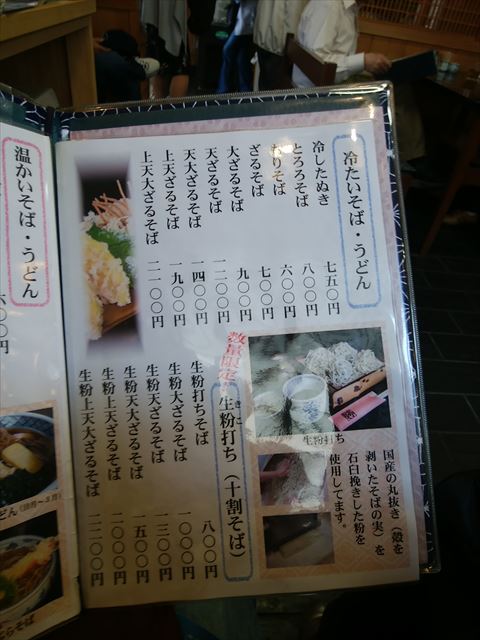 冷たいそば・うどん
冷したぬき 七五〇円
とろろそば 八〇〇円
もりそば 六〇〇円
ざるそば 七〇〇円
大ざるそば 九〇〇円
天ざるそば 一二〇〇円
天大ざるそば 一四〇〇円
上天ざるそば 一九〇〇円
上天大ざるそば 二一〇〇円
生粉打ち
国産の丸抜き（殻を
剥いたそばの実）を
石臼挽きした粉を
使用してます。
数量限定
生粉打ち（十割そば）
きこ
生粉打ちそば 八〇〇円
生粉大ざるそば 一〇〇〇円
生粉天ざるそば 一三〇〇円
生粉天大ざるそば 一五〇〇円
生粉上天ざるそば 二〇〇〇円
生粉上天大ざるそば 二二〇〇円
温かいそば・うどん
六〇〇円